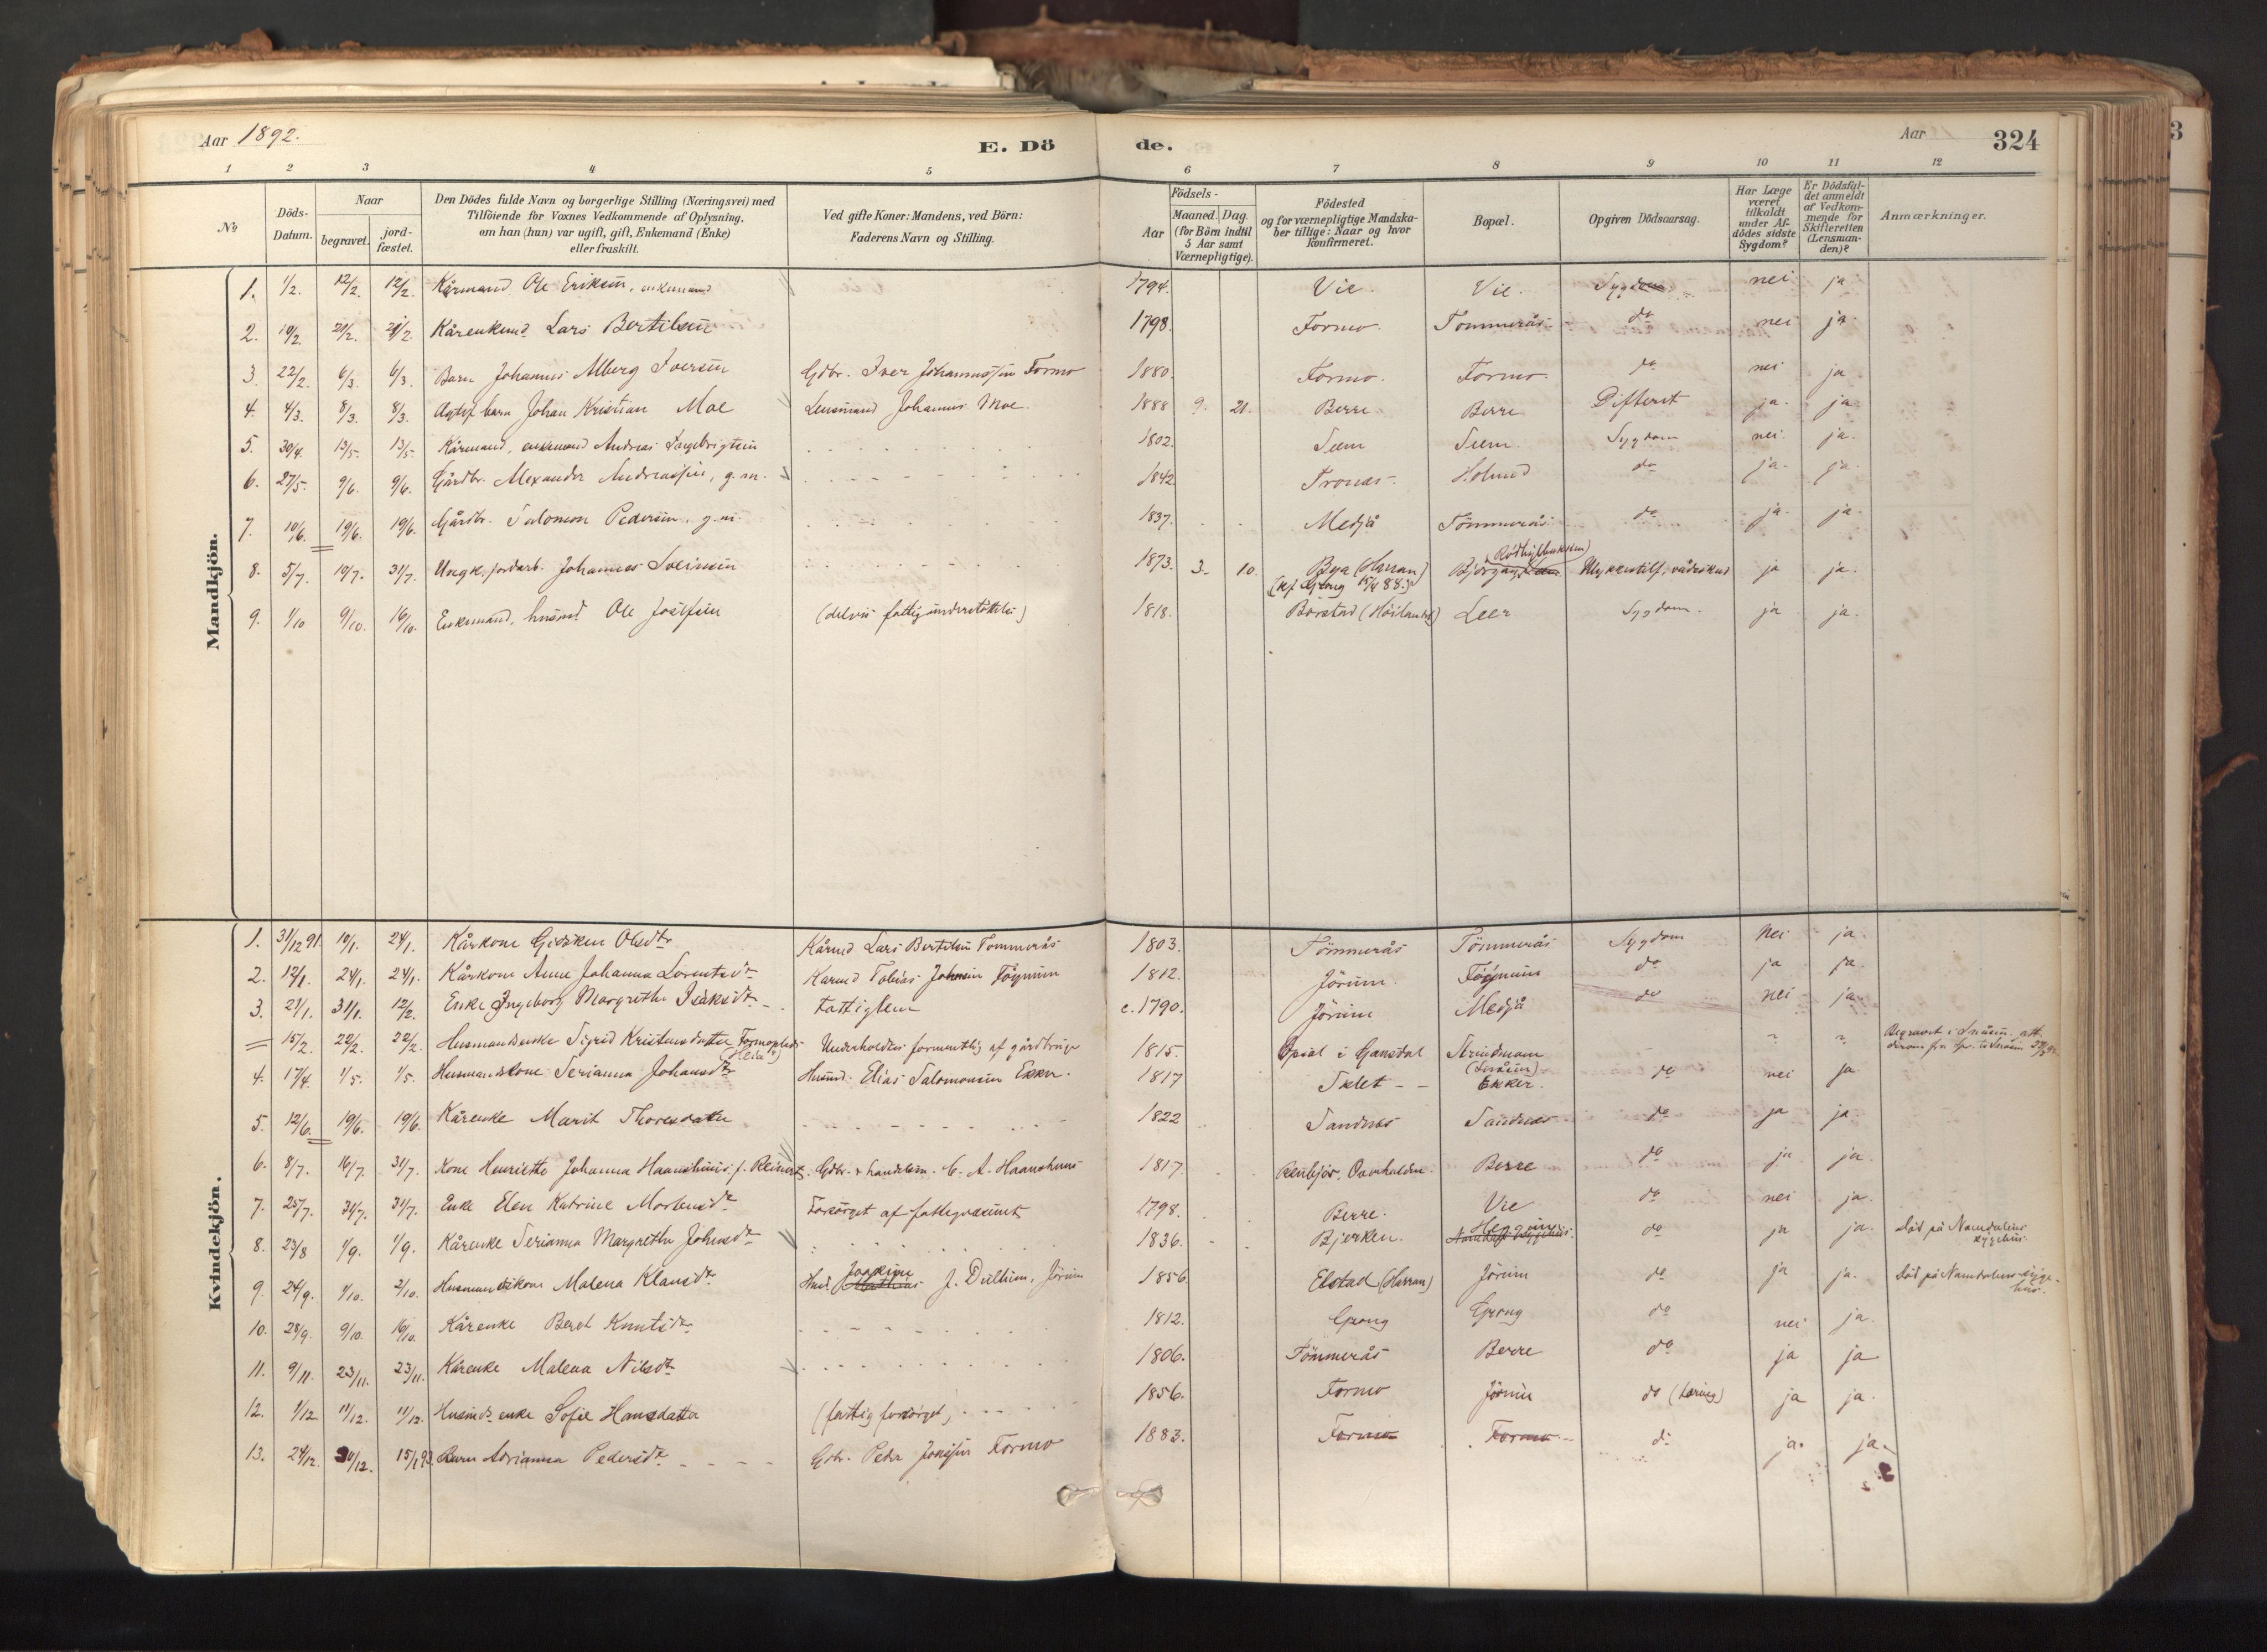 Aar 1892.
E. Dö
de.
Aar
324
1 2 3 4 5 6 7 8 9 10 11 12
No
Döds-Datum.
Naar
begravet.
jord-fæstet.
Den Dödes fulde Navn og borgerlige Stilling (Næringsvei) med
Tilföiende for Voxnes Vedkommende af Oplysning,
om han (hun) var ugift, gift, Enkemand (Enke)
eller fraskilt.
Ved gifte Koner: Mandens, ved Börn:
Faderens Navn og Stilling.
Födsels-
Aar
Maaned. Dag.
(for Börn indtil
5 Aar samt
Værnepligtige).
Födested
og for værnepligtige Mandska-
ber tillige: Naar og hvor
Konfirmeret.
Bopæl.
Opgiven Dödsaarsag.
Har Læge
været
tilkaldt
under Af-
dödes sidste
Sygdom?
Er Dödsfal-
det anmeldt
af Vedkom-
mende for
Skifteretten
(Lensman-
den)?
Anmærkninger.
Mandkjön.
1. 1/2. 12/2. 12/2. Kårmand Ole Eriksen, enkemand 1794. Vie. Vie. Sygdom nei ja
2. 10/2. 21/2. 21/2. Kårenkmd Lars Bertilsen 1798. Formo. Tommerås do nei ja
3. 22/2. 6/3. 6/3. Barn Johannes Alberg Iversen Gdbr. Iver Johannessen Formo 1880. Formo. Formo. do nei ja
4. 4/3. 8/3. 8/3. Ægtef barn Johan Kristian Moe Lensmand Johannes Moe. 1888 9. 21. Berre Berre Difterit ja. ja.
5. 30/4. 13/5. 13/5. Kårmand, enkemand Andreas Ingebrigtsen 1802. Seem Seem. Sygdom nei. ja.
6. 27/5. 9/6. 9/6. Gårdbr. Alexander Andreassen, g.m. 1842 Tronæs. Holmd do ja. ja.
7. 10/6. 19/6. 19/6. Gårdbr. Salomon Pedersen, g.m. 1837. Medjå Tömmerås do ja. ja.
8. 5/7. 10/7. 31/7. Ungk, jordarb. Johannes Sveinsen 1873. 3. 10. Bya (Harran) Bjørgan Ulykkestilf; vådeskud ja ja.
(kf Grong 15/4 88.)
9. 1/10 9/10. 16/10. Enkemand, husmd Ole Josefsen (delvis fattigunderstöttelse) 1818. Borstad (Höilandet) Leer Sygdom. ja ja.
Kvindekjön.
1. 31/12 91 10/1. 24/1. Kårkone Gidsken Olsdtr Kårmd Lars Bertilsen Tommerås 1803. Tömmerås Tömmerås Sygdom Nei ja
2. 12/1. 24/1. 24/1. Kårkone Anne Johanna Lorentsdtr Karmd Tobias Johnsen 1812. Jörum. do ja ja.
3. 21/1. 31/1. 12/2. Enke Ingeborg Margrethe Isaksdtr Fattiglem c. 1790. Jörum Medjå do nei ja
15/2. 22/2. 22/2. Husmandsenke Sigrid Kristensdatter Formoplads Underholdtes formentlig af gårdbruger 1815. Opsal i Gansdal Strindmoen (Snåsen) Begravet i Snåsen. att
4. 17/4. 1/5. 1/5. Husmandskone Serianna Johansdtr Husmd. Elias Salomonsen Ekker. 1817 Sklet Ekker. do nei ja
5. 12/6. 19/6. 19/6. Kårenke Marit Thoresdatter 1822 Sandnes Sandnes do ja ja.
6. 8/7. 16/7. 31/7. Kone Henriette Johanna Haanshuus, f. Reinert. Gdbr. & handelsm. C. A. Haanshuus 1817. Overhalden Berre do ja ja.
7. 25/7. 31/7. 31/7. Enke Elen Katrine Mortensdtr Forsörget af fattigvæsenet 1798. Berre. Vie do nei ja.
8. 23/8 1/9. 1/9. Kårenke Serianna Margrethe Johnsdtr 1836. Bjerken. do ja ja. Död på Namdalens
sygehus.
9. 24/9. 1/10. 2/10. Husmandskone Malena Klausdtr Husmd. Joakim J. Dullum, Jörum 1856 Elstad (Harran) Jörum do ja ja. Död på Namdalens syge-
hus.
10. 28/9. 9/10. 16/10. Kårenke Beret Knutsdtr 1812. Grong Grong do nei ja.
11. 9/11. 23/11. 23/11. Kårenke Malena Nilsdtr 1806. Tömmerås Berre do ja ja
12. 1/12 11/12. 11/12. Husmdsenke Sofie Hansdatter (fattig forsörget) 1856. Formo Jörum do (tæring) ja ja.
13. 24/12. 30/12. 15/1 93. Barn Adrianna Pedersdtr Gdbr. Peder Jonsen Formo 1883. Formo Formo do ja. ja.